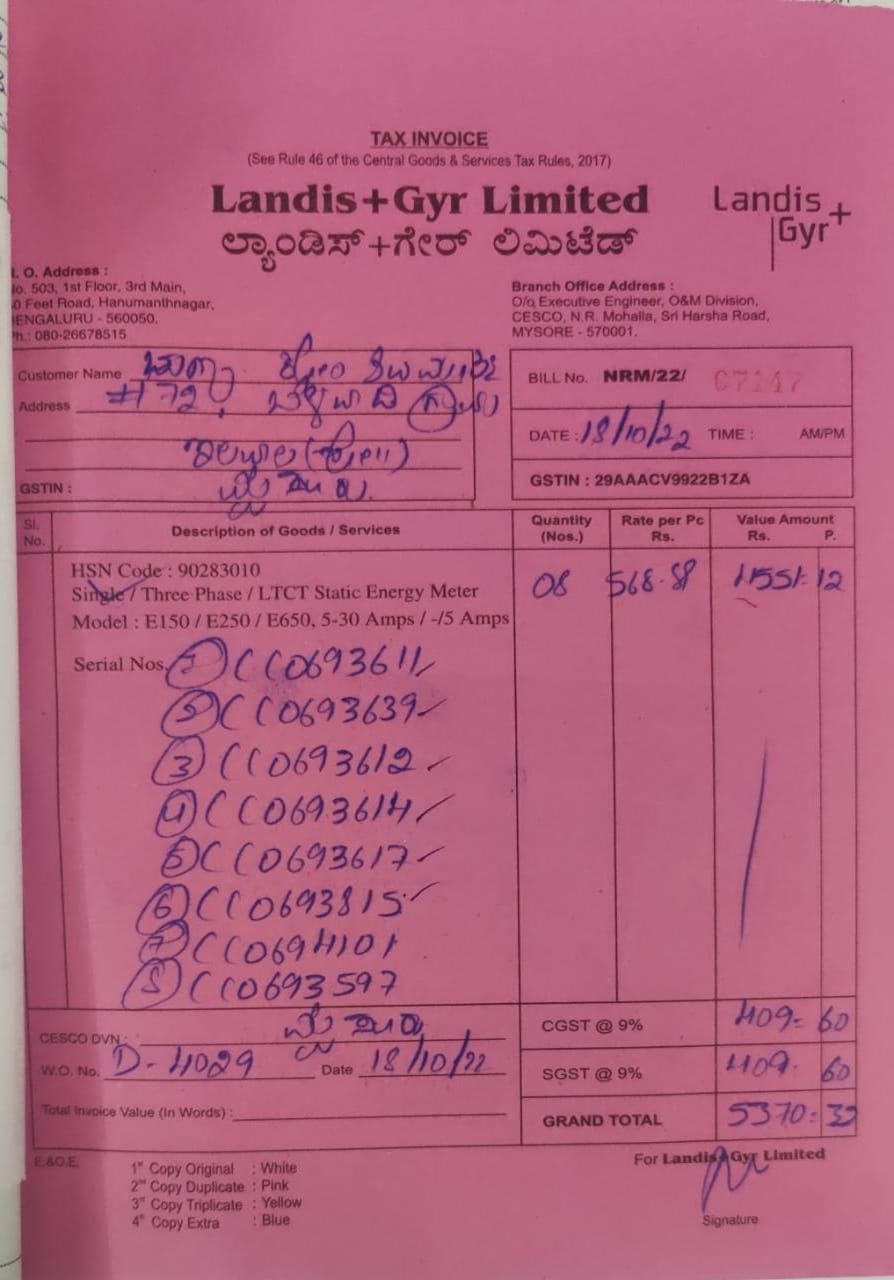 TAX INVOICE
(See Rule 46 of the Central Goods & Services Tax Rules, 2017)
Landis+Gyr Limited
Landis
Gyr+
ಲ್ಯಾಂಡಿಸ್+ಗೇರ್ ಲಿಮಿಟೆಡ್
O. Address :
No. 503, 1st Floor, 3rd Main,
0 Feet Road, Hanumanthnagar,
BENGALURU - 560050.
Ph.: 080-26678515
Branch Office Address :
O/o Executive Engineer, O&M Division,
CESCO, N.R. Mohalla, Sri Harsha Road,
MYSORE - 570001.
Customer Name
Address #72,
GSTIN :
BILL No. NRM/22/ 07147
DATE : 18/10/22 TIME : AM/PM
GSTIN : 29AAACV9922B1ZA
Sl. No. Description of Goods / Services Quantity (Nos.) Rate per Pc Rs. Value Amount Rs. P.
HSN Code : 90283010
Single / Three Phase / LTCT Static Energy Meter 08 568.88 4551=12
Model : E150 / E250 / E650, 5-30 Amps / -/5 Amps
Serial Nos. 1 CC0693611
2 CC0693639
3 CC0693612
4 CC0693614
5 CC0693617
6 CC0693815
7 CC0694101
8 CC0693597
CESCO DVN :
CGST @ 9% 409= 60
W.O. No. D-4029 Date 18/10/22
SGST @ 9% 409. 60
Total Invoice Value (In Words) :
GRAND TOTAL 5370=32
E.&O.E.
1st Copy Original : White
2nd Copy Duplicate : Pink
3rd Copy Triplicate : Yellow
4th Copy Extra : Blue
For Landis+Gyr Limited
Signature